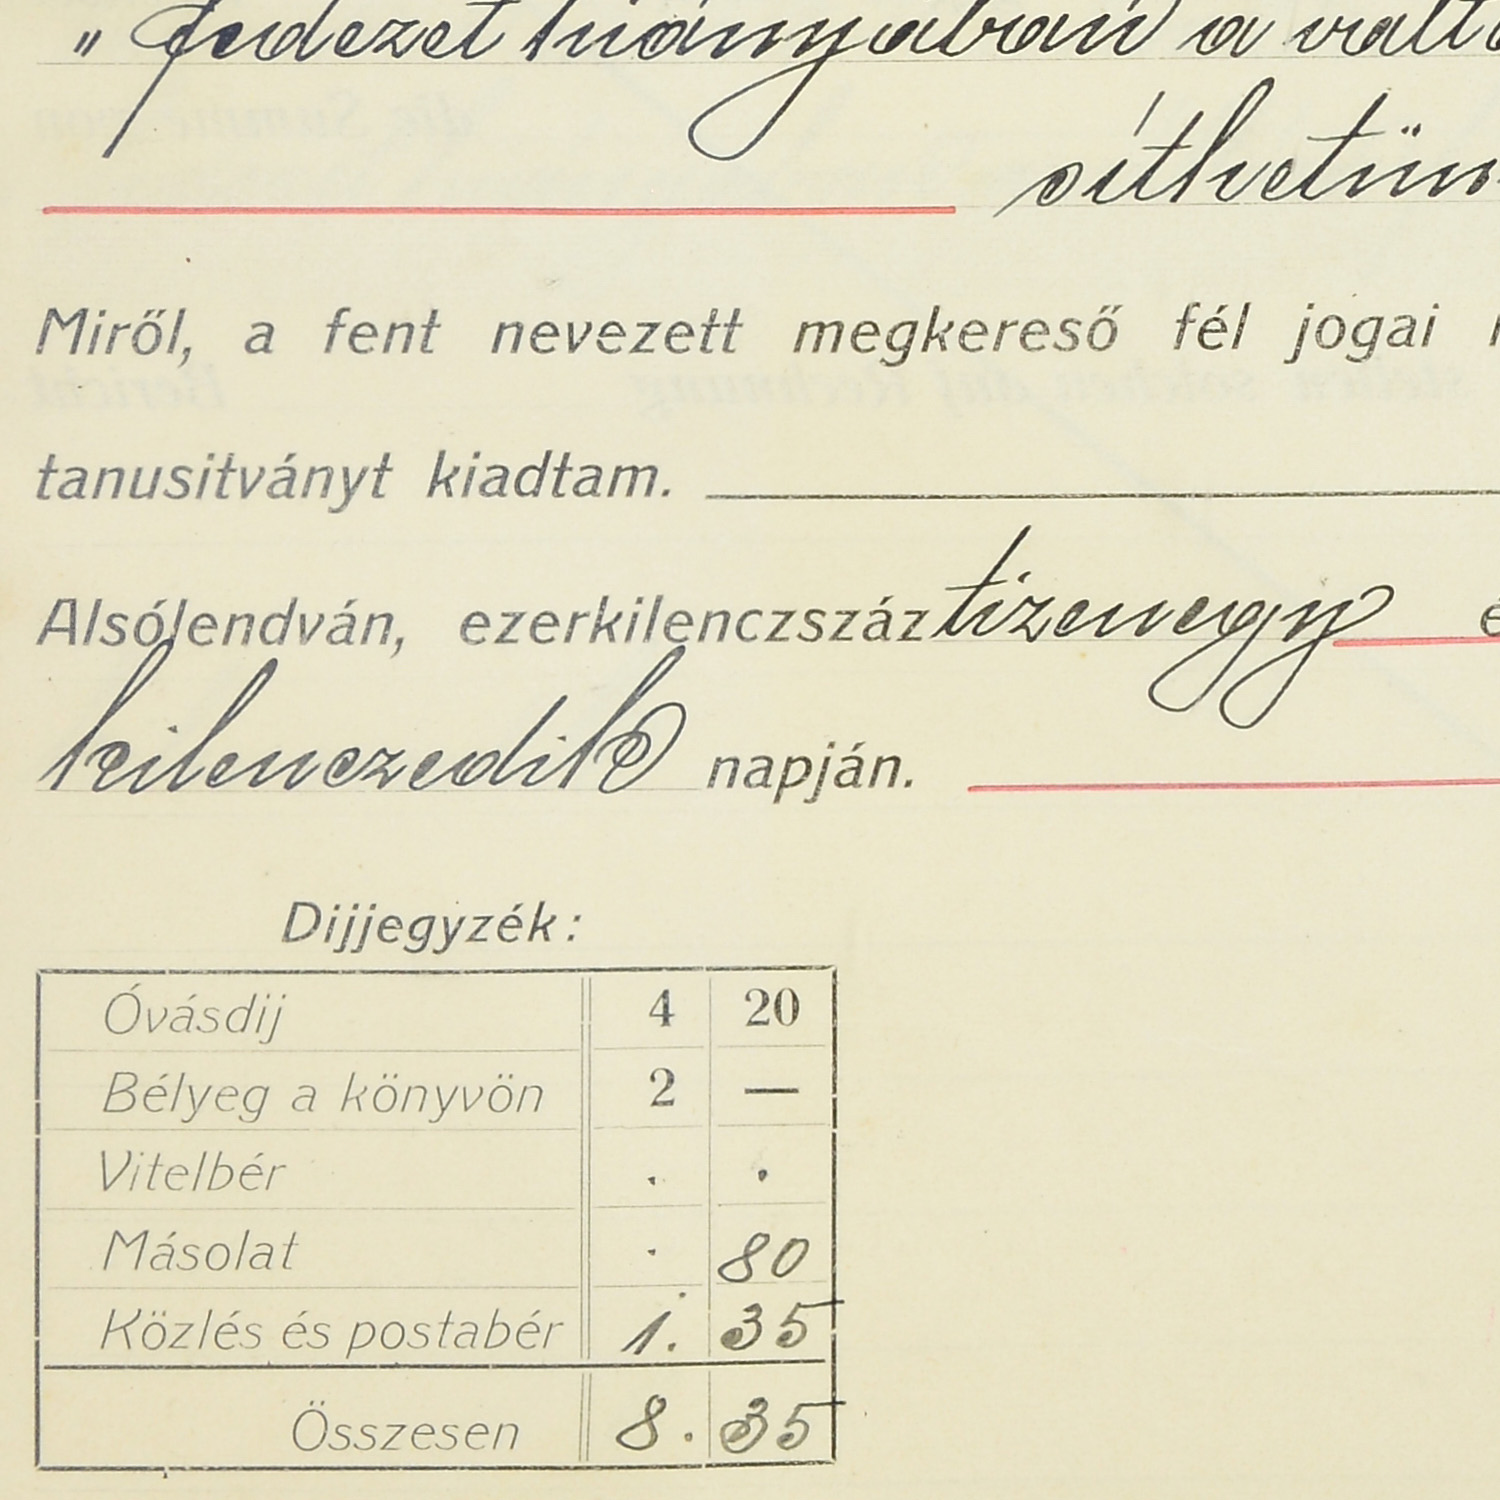 " fedezet hiányában a vált
síthetün
Miről, a fent nevezett megkereső fél jogai
tanusitványt kiadtam.
Alsólendván, ezerkilenczszáz tizenegy é
kilenczedik napján.
Dijjegyzék:
Óvásdij 4 20
Bélyeg a könyvön 2 —
Vitelbér . .
Másolat . 80
Közlés és postabér 1. 35
Összesen 8. 35